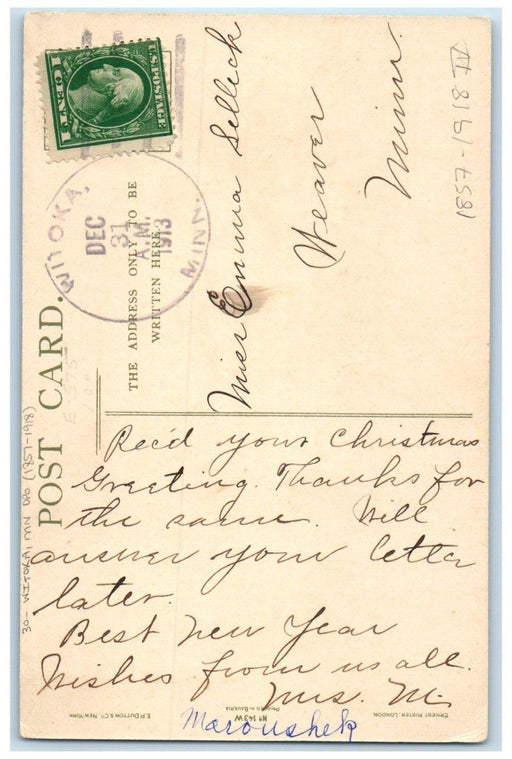 U.S. POSTAGE
1 CENT 1
WITOKA,
DEC
31
A.M.
1913
MINN.
POST CARD.
THE ADDRESS ONLY TO BE
WRITTEN HERE.
Miss Emma Selleck
Weaver
Minn.
1857-1918 IV
30- WITOKA, MN DPO (1857-1918)
Rec'd your Christmas
Greeting. Thanks for
the same. Will
answer your letter
later.
Best New Year
Wishes from us all.
Mrs. M.
Maroushek
E.P. DUTTON & CO. NEW YORK
No 143W
PRINTED IN BAVARIA
ERNEST NISTER, LONDON